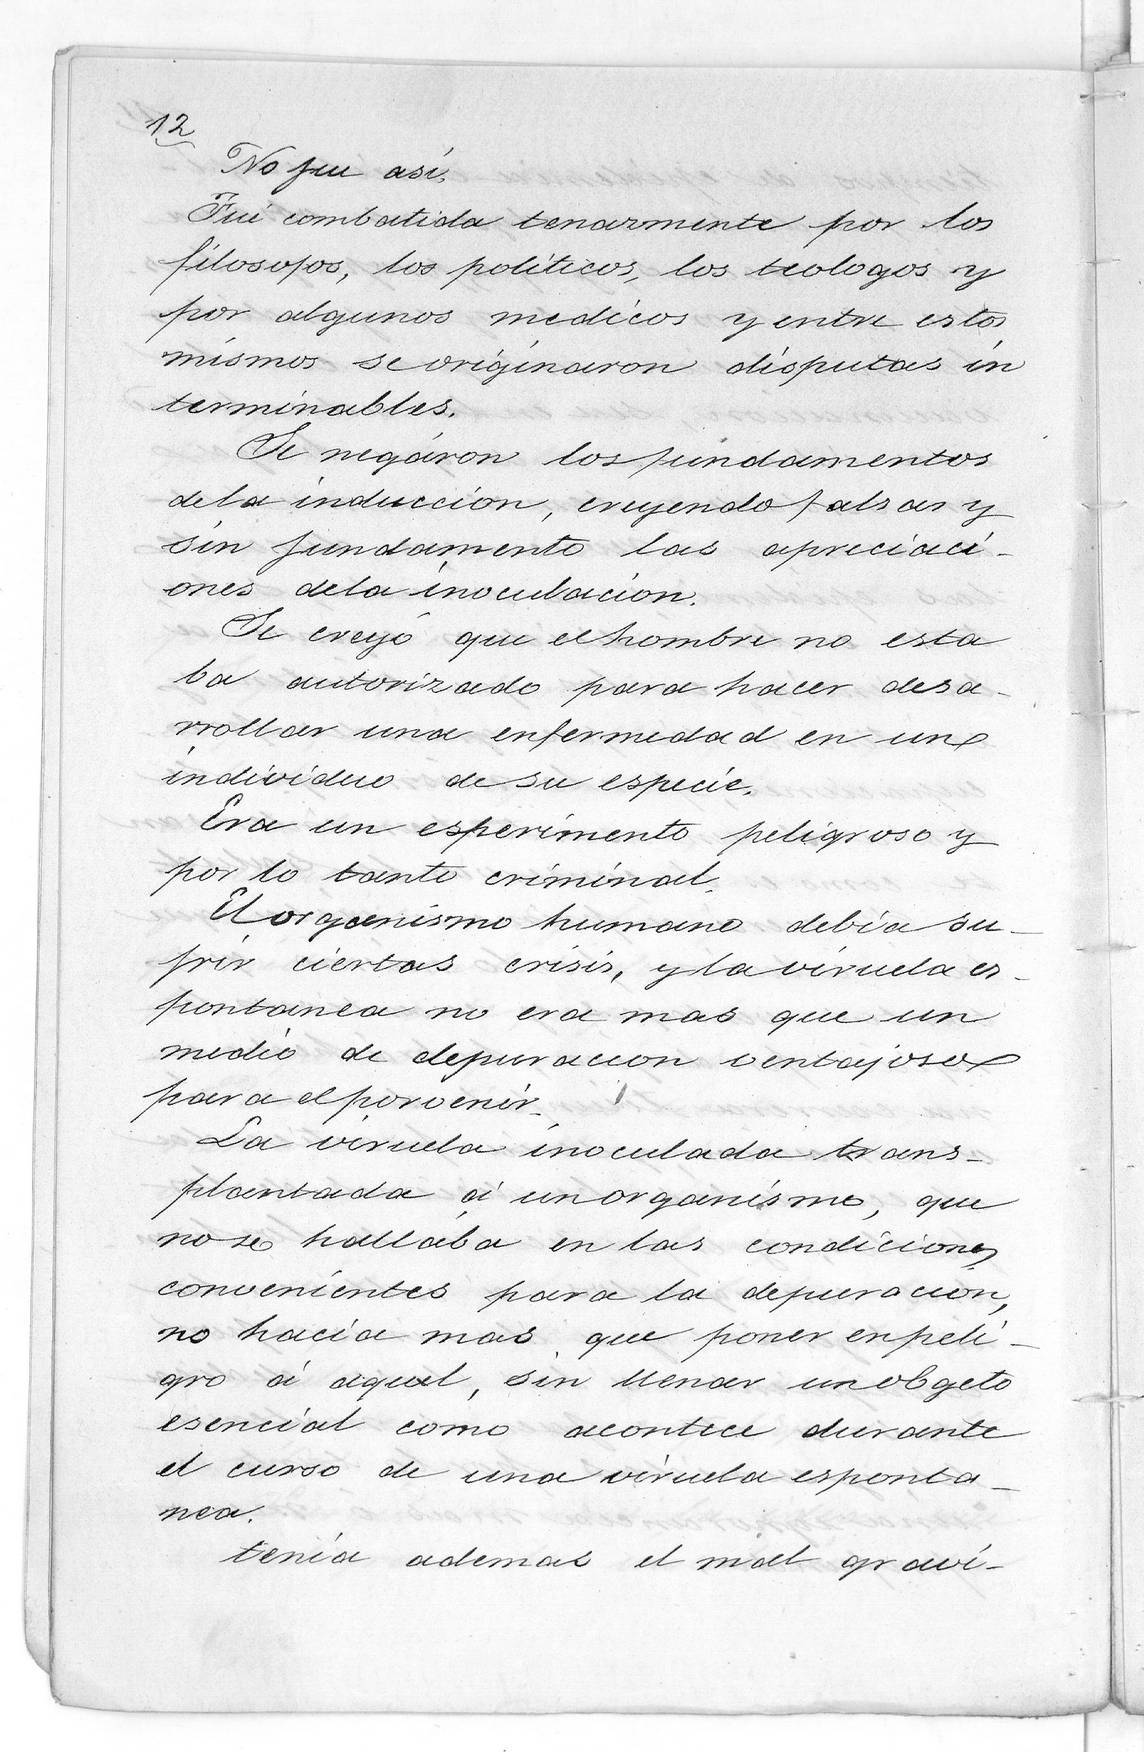 12
No fue así.
Fué combatida tenazmente por los
filosofos, los políticos, los teologos y
por algunos medicos y entre estos
mismos se originaron disputas in
terminables.
Se negáron los fundamentos
de la inducción, creyendo falsas y
sin fundamento las apreciaci-
ones de la inoculacion.
Se creyó que el hombre no esta
ba autorizado para hacer desa-
rrollar una enfermedad en un
individuo de su especie.
Era un esperimento peligroso y
por lo tanto criminal.
El organismo humano debia su-
frir ciertas crisis, y la viruela es-
pontanea no era mas que un
medio de depuracion ventajoso
para el porvenir.
La viruela inoculada trans-
plantada á un organismo, que
no se hallába en las condiciones
convenientes para la depuracion,
no hacia mas que poner en peli-
gro á aquel, sin llenar un obgeto
esencial como acontece durante
el curso de una viruela esponta-
nea.
tenía ademas el mal gravi-